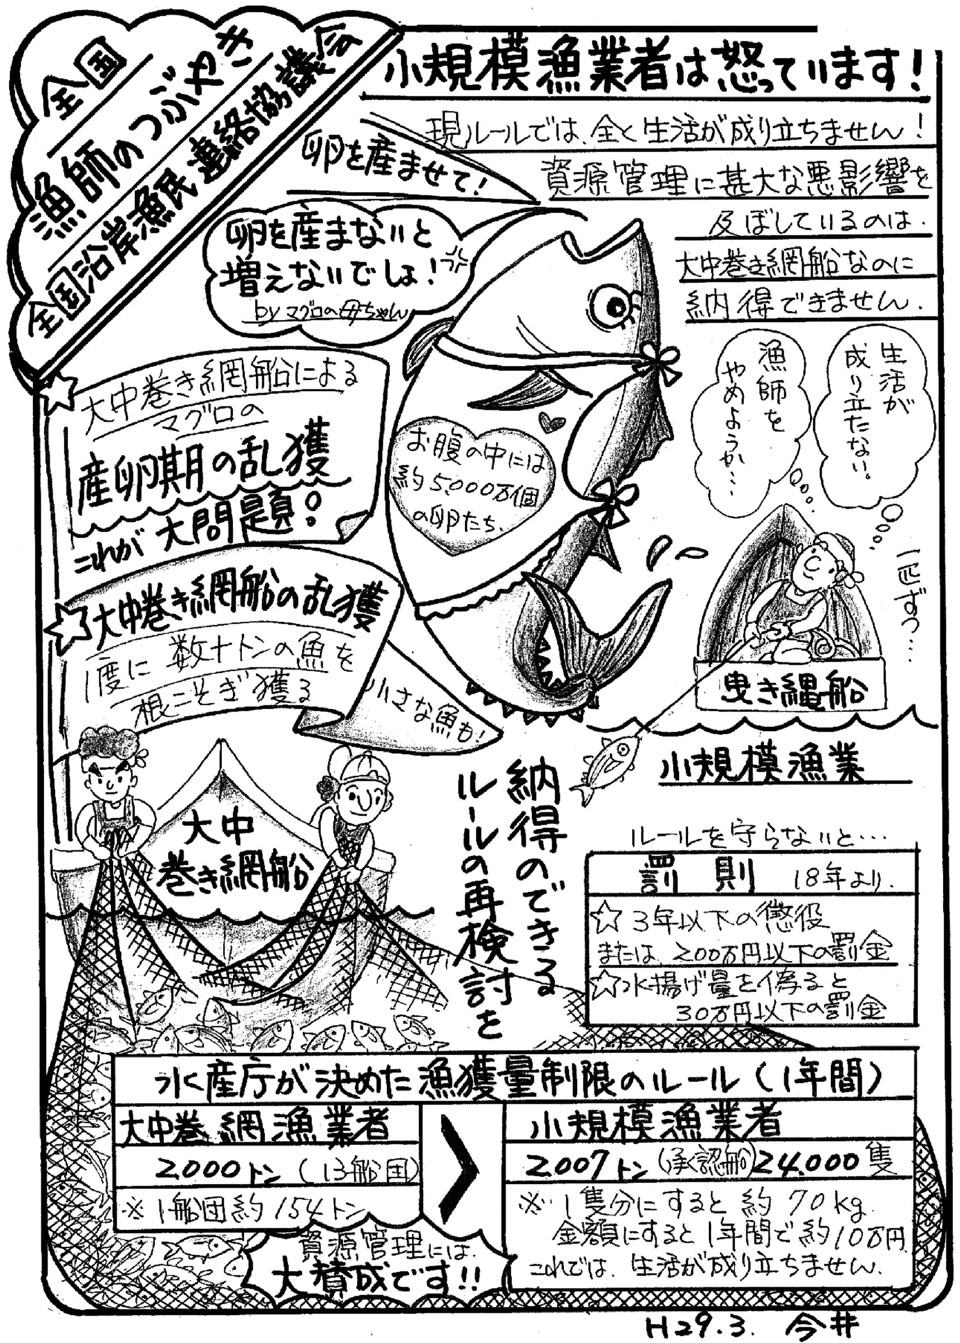 全国
漁師のつぶやき
全国沿岸漁民連絡協議会
小規模漁業者は怒っています!
現ルールでは、全く生活が成り立ちません!
資源管理に甚大な悪影響を
及ぼしているのは
大中巻き網船なのに
納得できません。
卵を産ませて!
卵を産まないと
増えないでしょ!
byマグロの母ちゃん
大中巻き網船による
マグロの
産卵期の乱獲
これが大問題!
お腹の中には
約5,000万個
の卵たち。
生活が
成り立たない。
漁師を
やめようか…
一匹ずつ…
曳き縄船
小規模漁業
大中巻き網船の乱獲
1度に数十トンの魚を
根こそぎ獲る
小さな魚も!
大中
巻き網船
納得のできる
ルールの再検討を
ルールを守らないと…
罰則 18年より
☆3年以下の懲役
または200万円以下の罰金
☆水揚げ量を偽ると
30万円以下の罰金
水産庁が決めた漁獲量制限のルール(1年間)
大中巻網漁業者
2,000トン(13船団)
※1船団約154トン
>
小規模漁業者
2007トン(承認船)24,000隻
※1隻分にすると約70kg
金額にすると1年間で約10万円
これでは、生活が成り立ちません。
資源管理には
大賛成です!!
H29.3. 今井